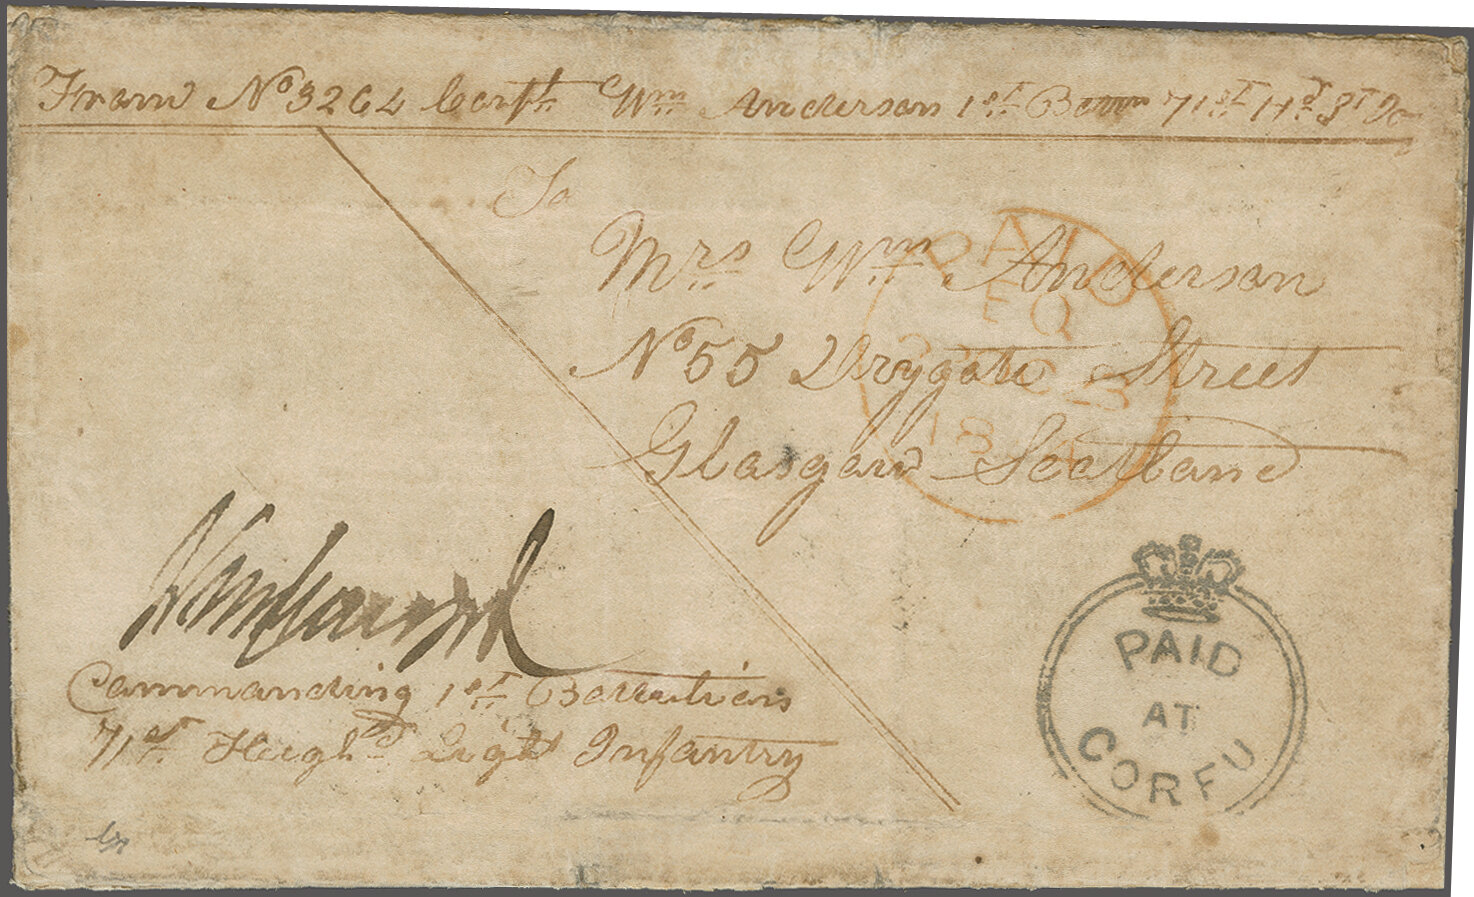 From No 3264 Corpl Wm Anderson 1st Batn 71st Hd Lt
To
Mrs Wm Anderson
No 55 Drygate Street
Glasgow Scotland
PAID
FQ
18
Commanding 1st Battalion
71st Highd Light Infantry
PAID
AT
CORFU